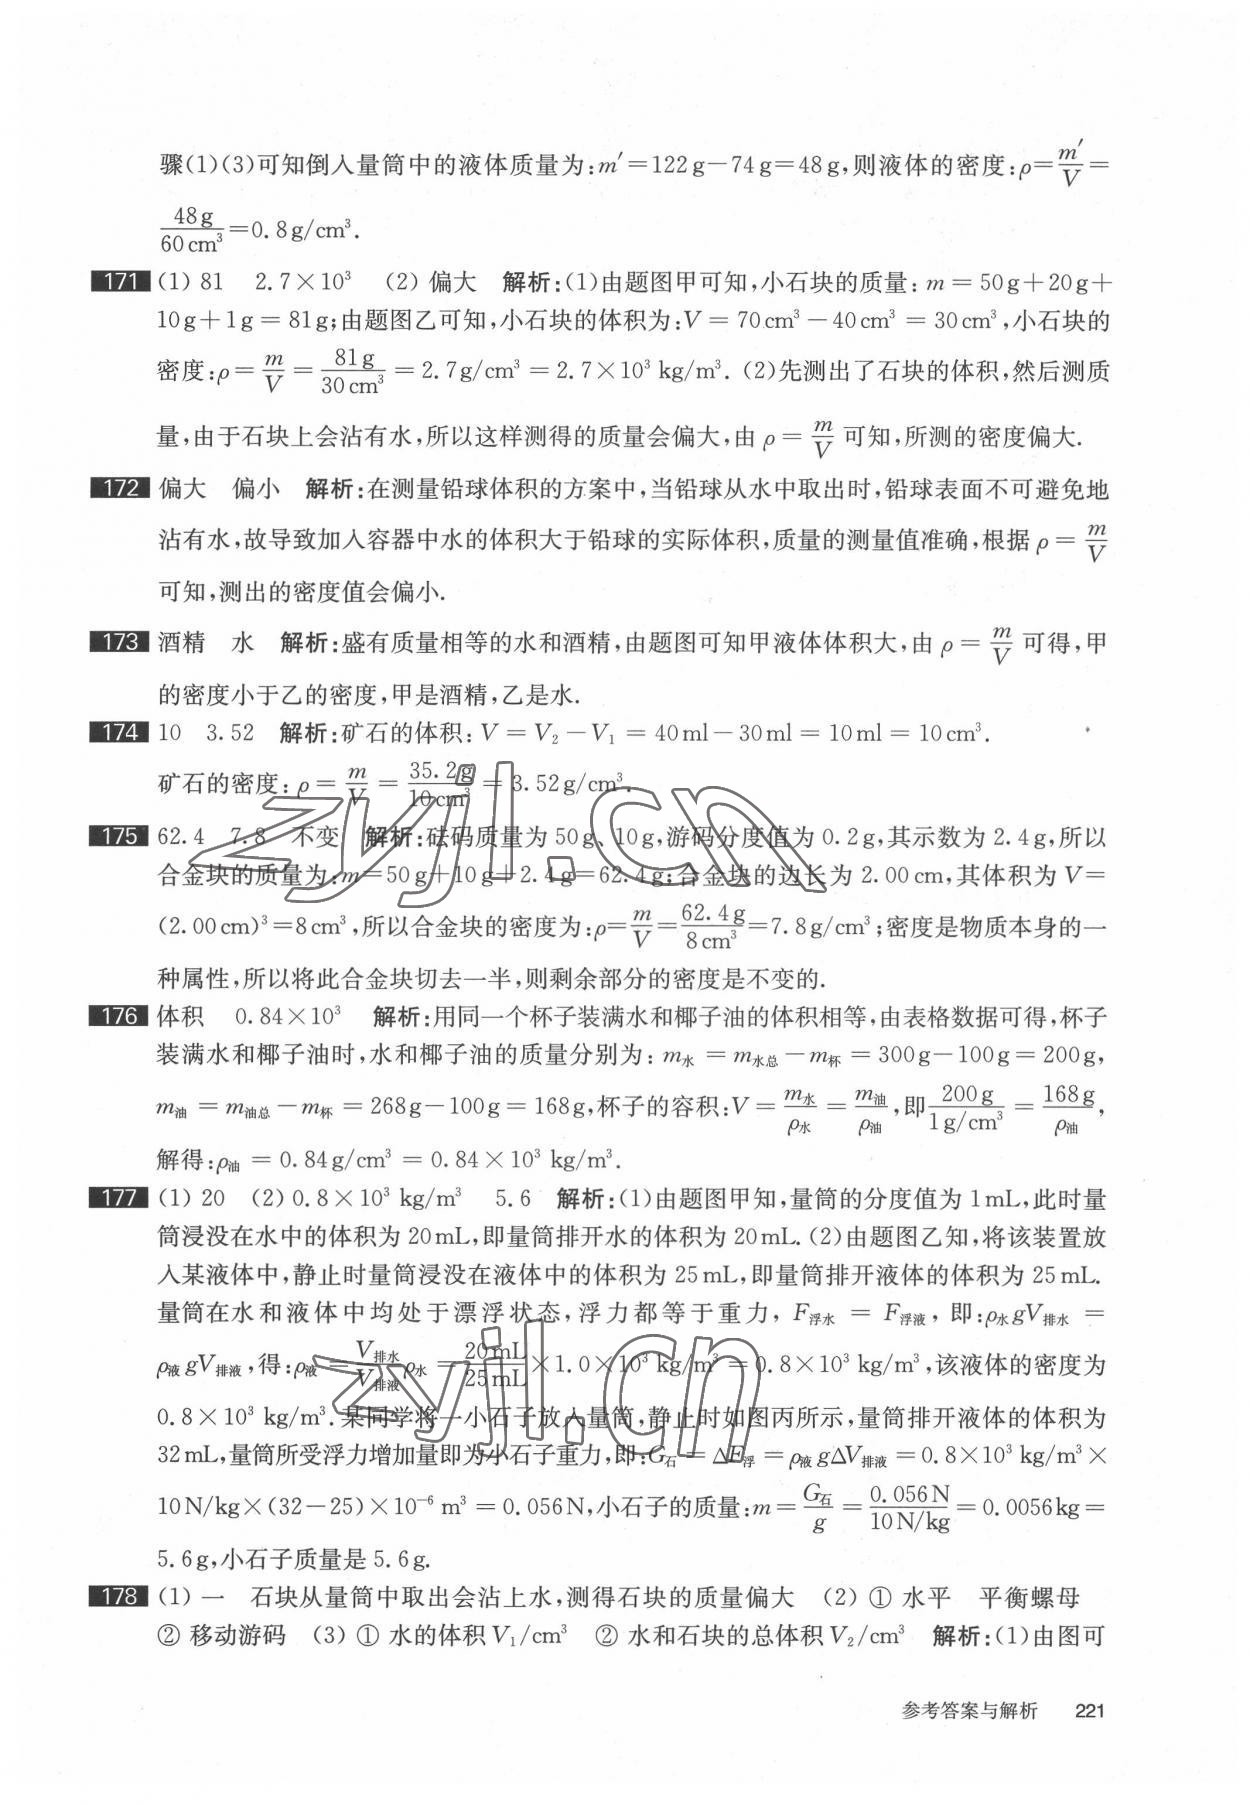 骤(1)(3)可知倒入量筒中的液体质量为:m′=122g-74g=48g,则液体的密度:ρ=m′/V=
48g/60cm³=0.8g/cm³.
171 (1) 81 2.7×10³ (2) 偏大 解析:(1)由题图甲可知,小石块的质量: m=50g+20g+
10g+1g=81g;由题图乙可知,小石块的体积为:V=70cm³-40cm³=30cm³,小石块的
密度:ρ=m/V=81g/30cm³=2.7g/cm³=2.7×10³ kg/m³. (2)先测出了石块的体积,然后测质
量,由于石块上会沾有水,所以这样测得的质量会偏大,由 ρ=m/V 可知,所测的密度偏大.
172 偏大 偏小 解析:在测量铅球体积的方案中,当铅球从水中取出时,铅球表面不可避免地
沾有水,故导致加入容器中水的体积大于铅球的实际体积,质量的测量值准确,根据 ρ=m/V
可知,测出的密度值会偏小.
173 酒精 水 解析:盛有质量相等的水和酒精,由题图可知甲液体体积大,由 ρ=m/V 可得,甲
的密度小于乙的密度,甲是酒精,乙是水.
174 10 3.52 解析:矿石的体积: V=V₂-V₁=40ml-30ml=10ml=10cm³.
矿石的密度: ρ=m/V=35.2g/10cm³=3.52g/cm³.
175 62.4 7.8 不变 解析:砝码质量为50g、10g,游码分度值为0.2g,其示数为2.4g,所以
合金块的质量为:m=50g+10g+2.4g=62.4g;合金块的边长为2.00cm,其体积为V=
(2.00cm)³=8cm³,所以合金块的密度为:ρ=m/V=62.4g/8cm³=7.8g/cm³;密度是物质本身的一
种属性,所以将此合金块切去一半,则剩余部分的密度是不变的.
176 体积 0.84×10³ 解析:用同一个杯子装满水和椰子油的体积相等,由表格数据可得,杯子
装满水和椰子油时,水和椰子油的质量分别为: m水=m水总-m杯=300g-100g=200g,
m油=m油总-m杯=268g-100g=168g,杯子的容积:V=m水/ρ水=m油/ρ油,即200g/1g/cm³=168g/ρ油,
解得:ρ油=0.84g/cm³=0.84×10³ kg/m³.
177 (1) 20 (2) 0.8×10³ kg/m³ 5.6 解析:(1)由题图甲知,量筒的分度值为1mL,此时量
筒浸没在水中的体积为20mL,即量筒排开水的体积为20mL. (2)由题图乙知,将该装置放
入某液体中,静止时量筒浸没在液体中的体积为25mL,即量筒排开液体的体积为25mL.
量筒在水和液体中均处于漂浮状态,浮力都等于重力, F浮水=F浮液, 即:ρ水gV排水=
ρ液gV排液,得:ρ液=V排水/V排液ρ水=20mL/25mL×1.0×10³ kg/m³=0.8×10³ kg/m³,该液体的密度为
0.8×10³ kg/m³.某同学将一小石子放入量筒,静止时如图丙所示,量筒排开液体的体积为
32mL,量筒所受浮力增加量即为小石子重力,即:G石=ΔF浮=ρ液gΔV排液=0.8×10³ kg/m³×
10N/kg×(32-25)×10⁻⁶ m³=0.056N,小石子的质量:m=G石/g=0.056N/10N/kg=0.0056kg=
5.6g,小石子质量是5.6g.
178 (1) 一 石块从量筒中取出会沾上水,测得石块的质量偏大 (2) ① 水平 平衡螺母
② 移动游码 (3) ① 水的体积V₁/cm³ ② 水和石块的总体积V₂/cm³ 解析:(1)由图可
参考答案与解析 221
zyjl.cn
zyjl.cn